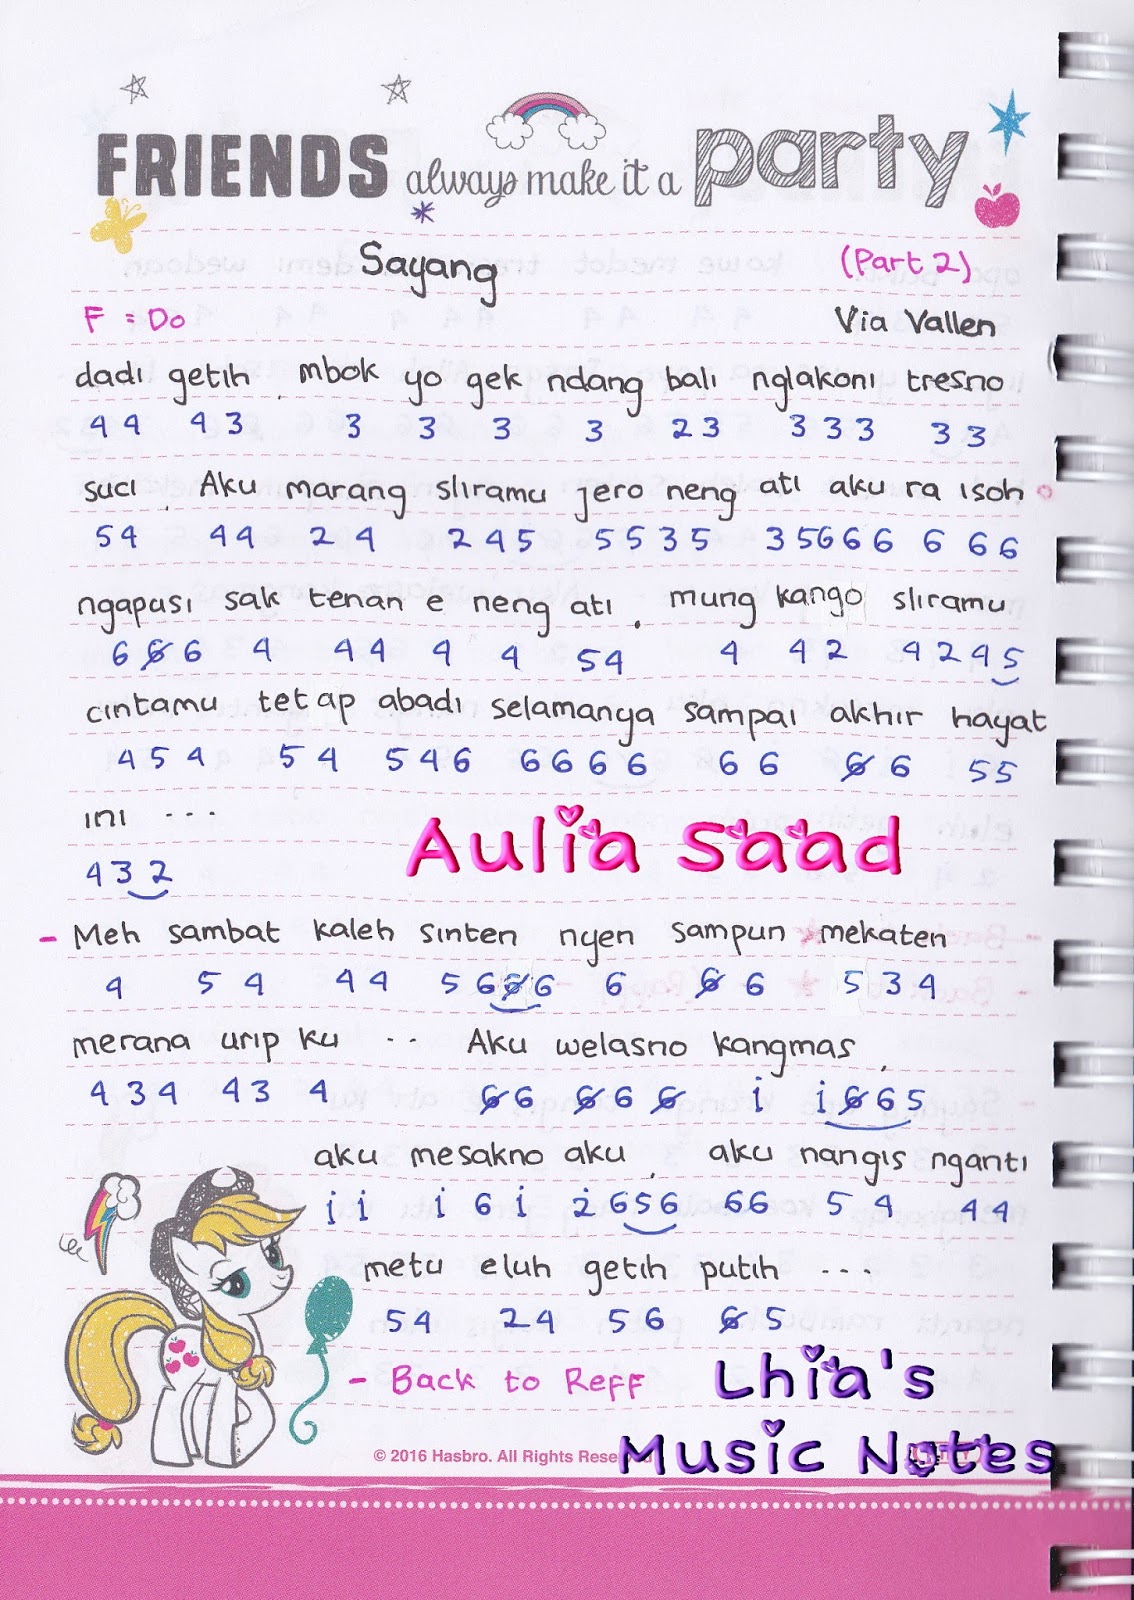 FRIENDS always make it a party
Sayang (Part 2)
F = Do Via Vallen
dadi getih , mbok yo gek ndang bali nglakoni tresno
4 4 4 3 3 3 3 3 2 3 3 3 3 3 3
suci , Aku marang sliramu jero neng ati aku ra isoh
5 4 4 4 2 4 2 4 5 5 5 3 5 3 5 6 6 6 6 6 6
ngapusi sak tenan e neng ati , mung kango sliramu
6 6̸ 6 4 4 4 4 4 5 4 4 4 2 4 2 4 5
cintamu tetap abadi selamanya sampai akhir hayat
4 5 4 5 4 5 4 6 6 6 6 6 6 6 6̸ 6 5 5
ini ...
4 3 2
Aulia Saad
- Meh sambat kaleh sinten nyen sampun mekaten
4 5 4 4 4 5 6 6̸ 6 6 6̸ 6 5 3 4
merana urip ku .. Aku welasno kangmas ,
4 3 4 4 3 4 6̸ 6 6̸ 6 6̸ i i 6̸ 6 5
aku mesakno aku , aku nangis nganti
i i i 6 i 2̇ 6 5 6 6 6 5 4 4 4
metu eluh getih putih ...
5 4 2 4 5 6 6̸ 5
- Back to Reff
Lhia's
Music Notes
© 2016 Hasbro. All Rights Rese